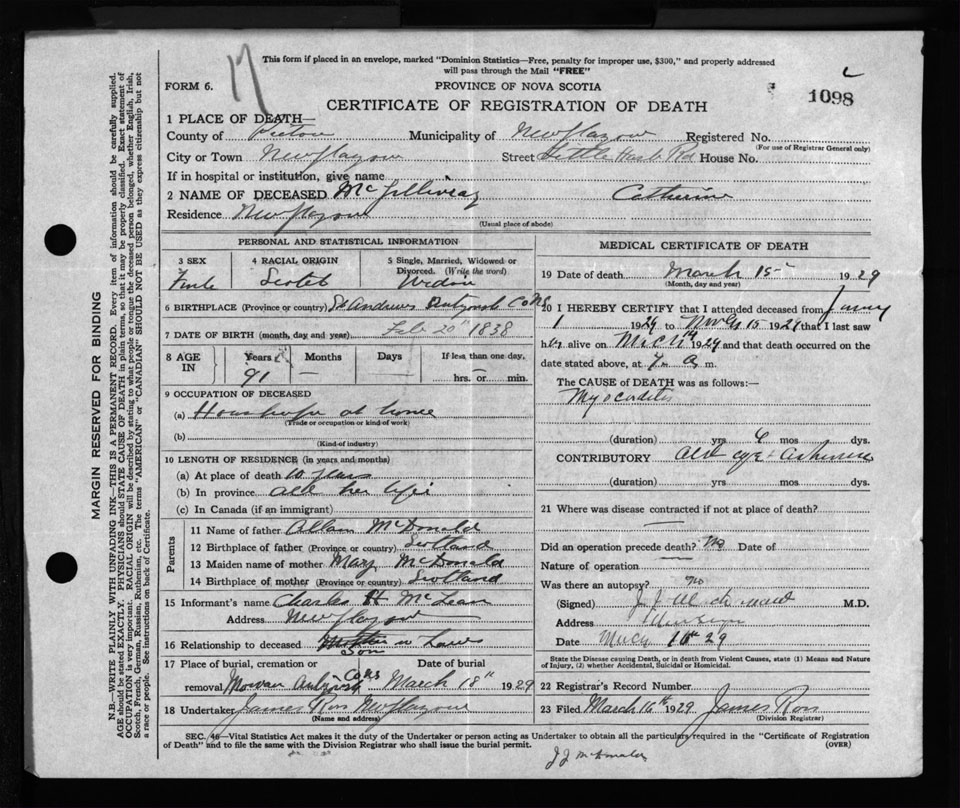 This form if placed in an envelope, marked "Dominion Statistics—Free, penalty for improper use, $300," and properly addressed
will pass through the Mail "FREE"
FORM 6.
PROVINCE OF NOVA SCOTIA
1098
CERTIFICATE OF REGISTRATION OF DEATH
1 PLACE OF DEATH—
County of Pictou Municipality of New Glasgow Registered No.
(For use of Registrar General only)
City or Town New Glasgow Street Little Harb Rd House No.
If in hospital or institution, give name
2 NAME OF DECEASED McGillivray Catherine
Residence New Glasgow
(Usual place of abode)
PERSONAL AND STATISTICAL INFORMATION
3 SEX
4 RACIAL ORIGIN
5 Single, Married, Widowed or
Divorced. (Write the word)
Scotch
Widow
6 BIRTHPLACE (Province or country) St Andrews Antigonish Co NS
7 DATE OF BIRTH (month, day and year) Feb 20th 1838
8 AGE IN
Years Months Days If less than one day,
91 — — hrs. or min.
9 OCCUPATION OF DECEASED
(a) at home
(Trade or occupation or kind of work)
(b)
(Kind of industry)
10 LENGTH OF RESIDENCE (in years and months)
(a) At place of death 10 years
(b) In province all her life
(c) In Canada (if an immigrant)
Parents
11 Name of father Allan McDonald
12 Birthplace of father (Province or country) Scotland
13 Maiden name of mother Mary McDonald
14 Birthplace of mother (Province or country) Scotland
15 Informant's name Charles H McLean
Address New Glasgow
16 Relationship to deceased Son in Law
17 Place of burial, cremation or Date of burial
removal March 18th 1929
18 Undertaker James Ross New Glasgow
(Name and address)
MEDICAL CERTIFICATE OF DEATH
19 Date of death March 15 1929
(Month, day and year)
20 I HEREBY CERTIFY that I attended deceased from January
1 1929 to March 15 1929 that I last saw
her alive on March 14 1929 and that death occurred on the
date stated above, at 7 a m.
The CAUSE of DEATH was as follows:—
Myocarditis
(duration) yrs 6 mos dys.
CONTRIBUTORY Old age
(duration) yrs mos dys.
21 Where was disease contracted if not at place of death?
—
Did an operation precede death? No Date of
Nature of operation —
Was there an autopsy? no
(Signed) M.D.
Address
Date 16th 29
State the Disease causing Death, or in death from Violent Causes, state (1) Means and Nature
of Injury, (2) whether Accidental, Suicidal or Homicidal.
22 Registrar's Record Number
23 Filed March 16th 1929 James Ross
(Division Registrar)
SEC. 46—Vital Statistics Act makes it the duty of the Undertaker or person acting as Undertaker to obtain all the particulars required in the "Certificate of Registration
of Death" and to file the same with the Division Registrar who shall issue the burial permit.
(OVER)
MARGIN RESERVED FOR BINDING
N.B.—WRITE PLAINLY WITH UNFADING INK—THIS IS A PERMANENT RECORD. Every item of information should be carefully supplied.
AGE should be stated EXACTLY. PHYSICIANS should STATE CAUSE OF DEATH in plain terms, so that it may be properly classified. Exact statement of
OCCUPATION is very important. RACIAL ORIGIN will be described by stating to what people or tongue the deceased person belonged, whether English, Irish,
Scotch, French, German, Russian, Ruthenian, etc. The terms "AMERICAN" or "CANADIAN" SHOULD NOT BE USED as they express citizenship but not
a race or people. See instructions on back of Certificate.